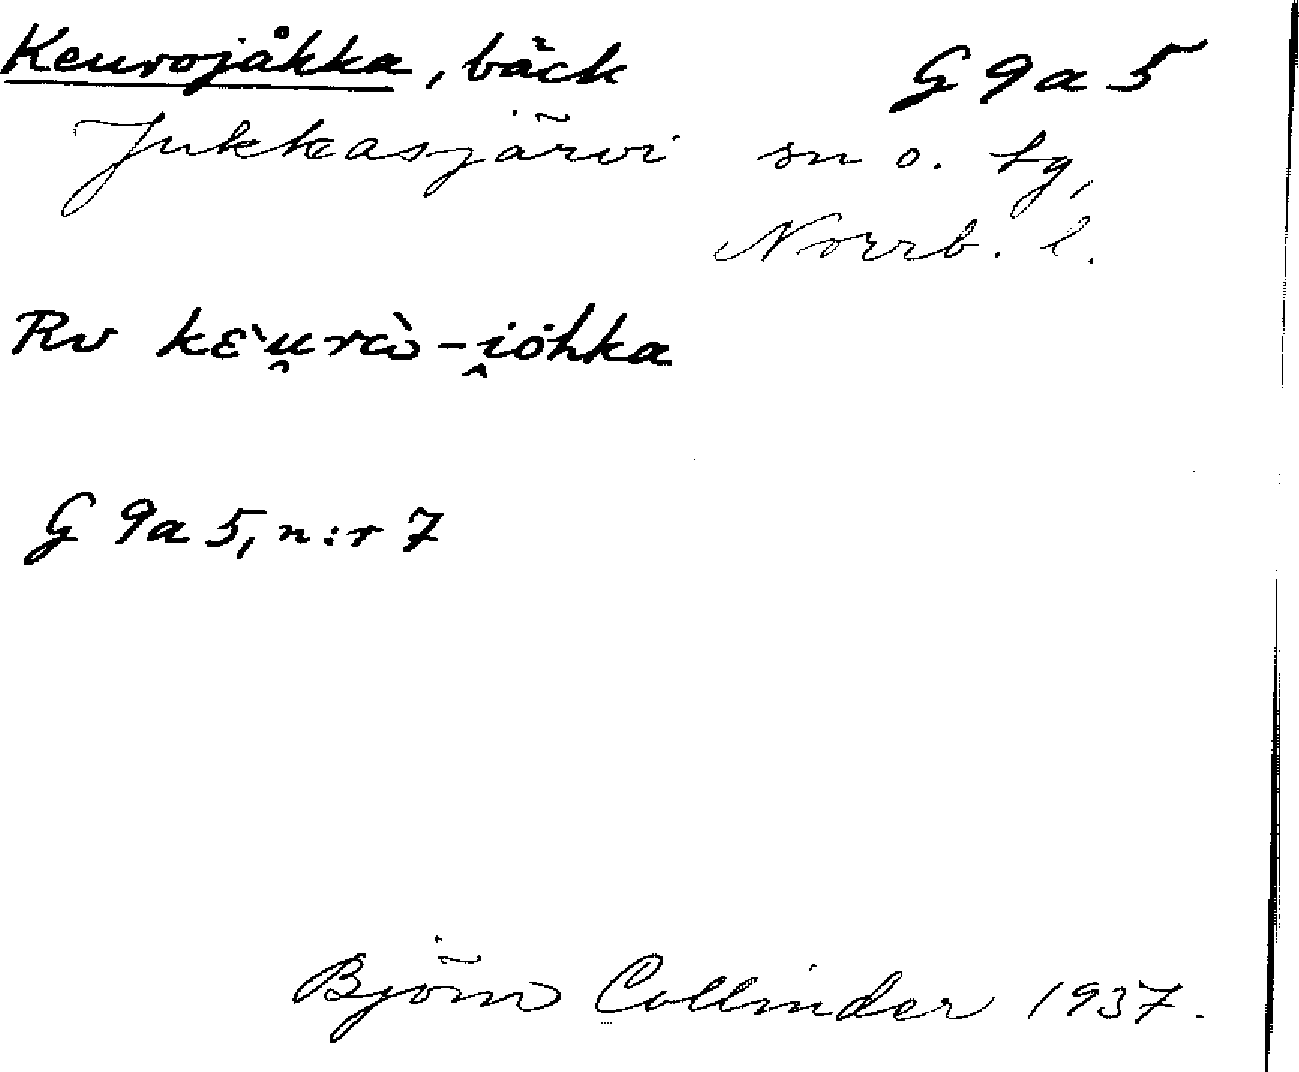 Keurojåkka, bäck G 9a 5
Jukkasjärvi sn o. tg,
Norrb. l.
Rv kɛ̀u̯rɷ̀-i̯ȯhka
G 9a 5, n:r 7
Björn Collinder 1937.